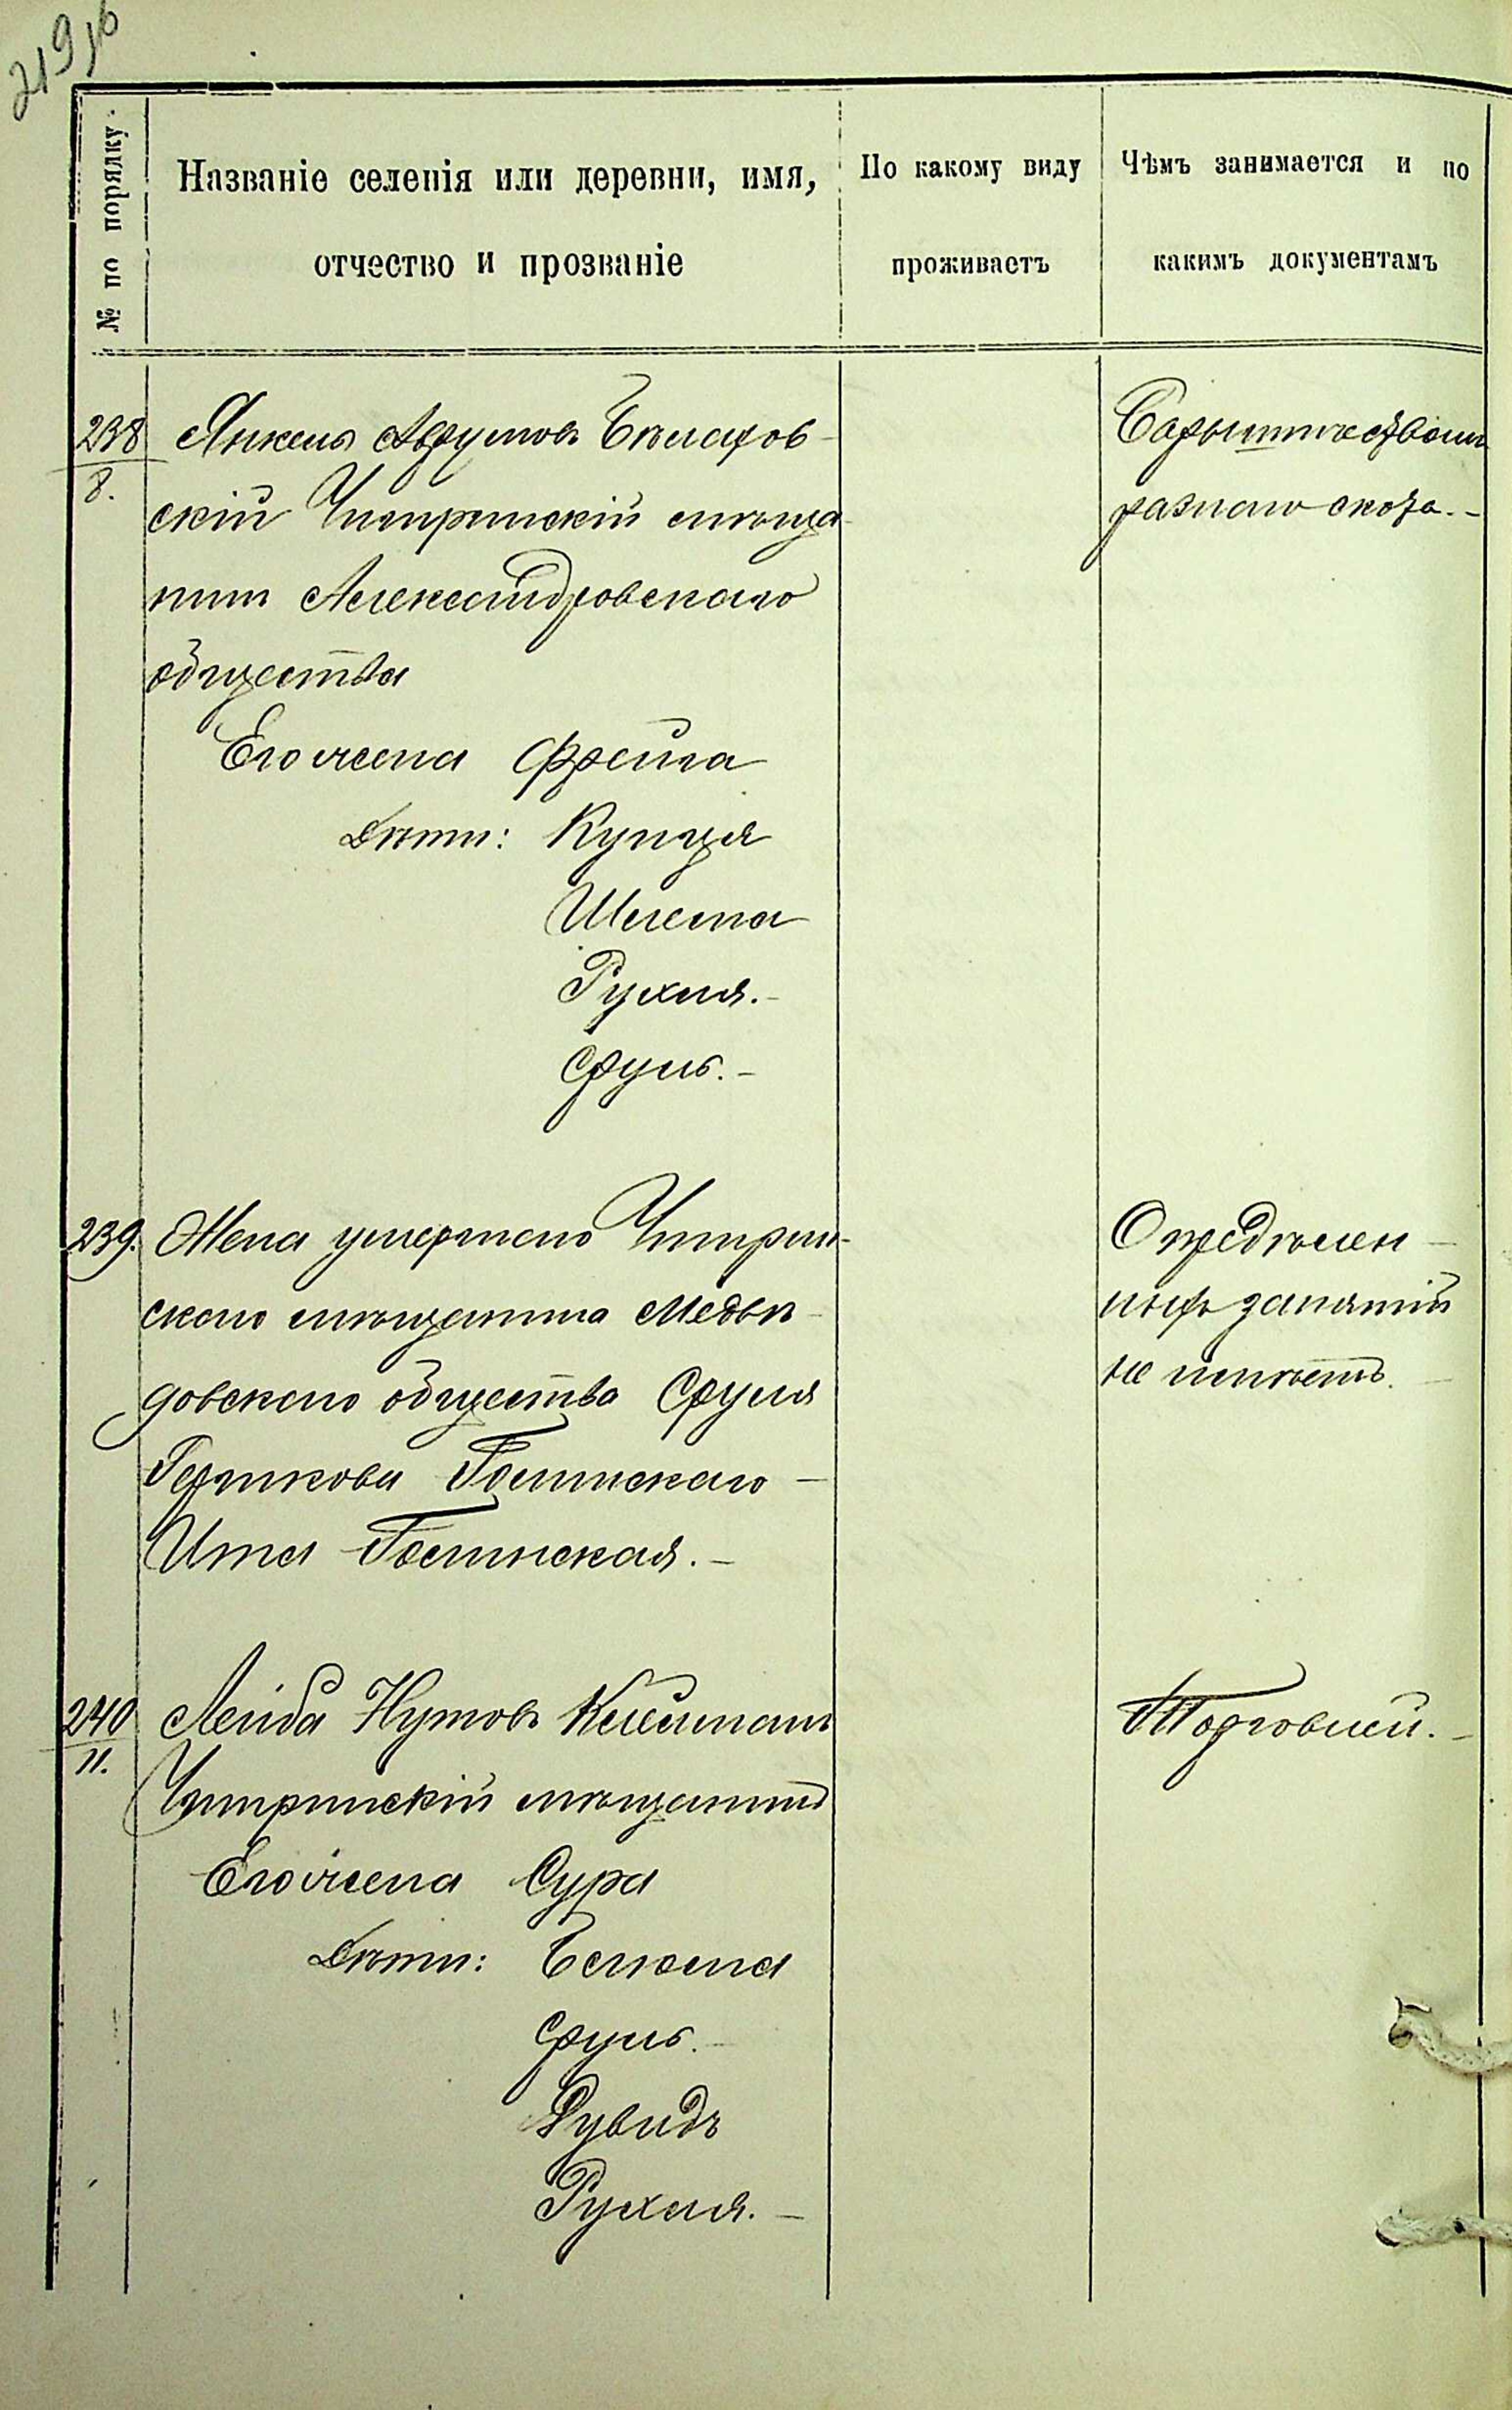 219 об
№ по порядку.
Названіе селенія или деревни, имя,
отчество и прозваніе
По какому виду
проживаетъ
Чѣмъ занимается и по
какимъ документамъ
238
8.
Янкель Аврумовъ Бѣларов-
скій Чигиринскій мѣща-
нин Александровскаго
общества
Его жена Фрейга
Дѣти: Купця
Шлема
Рухля.-
Сруль.-
Барышничествомъ
разнаго скота.-
239.
Жена умершаго Чигирин-
скаго мѣщанина Медвѣ-
довскаго общества Сруля
Гершкова Голинскаго -
Ита Голинская.-
Опредѣлен-
ныхъ занятій
не имѣетъ.-
240
11.
Лейба Нутовъ Клейманъ
Чигиринскій мѣщанинъ
Его жена Сура
Дѣти: Беллюма
Сруль.-
Дувидъ
Рухля.-
Торговлей.-